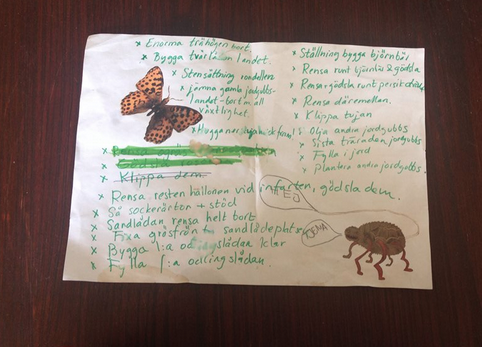 × Enorma trähögen bort.
× Bygga tvärs landet.
× Stensättning rondellen
× jämna gamla jordgubbs-
landet - bort m all
växtlighet
× Hugga ner
× Klippa dem.
× Rensa resten hallonen vid infarten, gödsla dem.
× Så sockerärtor + stöd
× Sandlådan rensa helt bort
× Fixa gräsfrön sandlådeplatsen
× Bygga 1:a odlingslådan klar
× Fylla 1:a odlingslådan.
× Ställning bygga björnbär
× Rensa runt björnbär & gödsla
× Rensa + gödsla runt persikoträden
× Rensa däremellan.
× Klippa tujan
× Olja andra jordgubbs
× Sista trärådan, jordgubbs
× Fylla i jord
× Plantera andra jordgubbs.
EJ
JENA